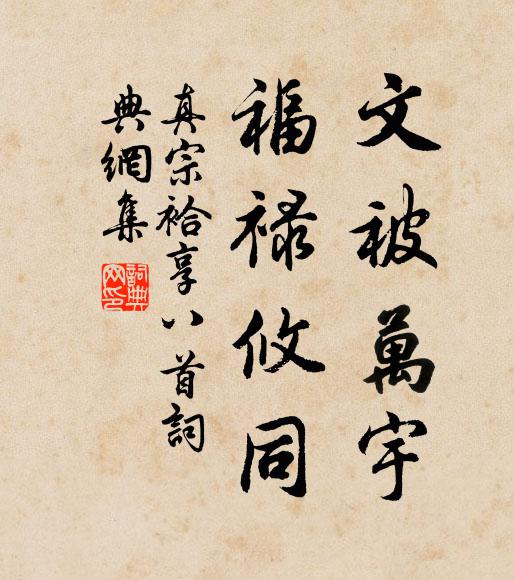 文被萬宇
福祿攸同
真宗祫享八首詞
典網集
詞典
网印